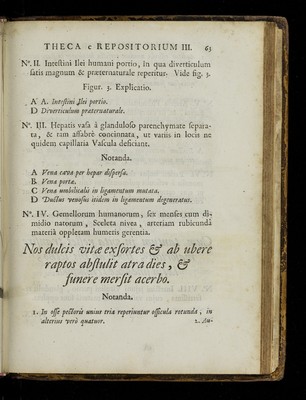 THECA c REPOSITORIUM III. 63
Nº. II. Inteſtini Ilei humani portio, in qua diverticulum
ſatis magnum & præternaturale reperitur. Vide fig. 3.
Figur. 3. Explicatio.
A A. Inteſtini Ilei portio.
D Diverticulum præternaturale.
Nº. III. Hepatis vaſa à glanduloſo parenchymate ſepara-
ta, & tam affabrè concinnata, ut variis in locis ne
quidem capillaria Vaſcula deſiciant.
Notanda.
A Vena cava per hepar diſperſa.
B Vena portæ.
C Vena umbilicalis in ligamentum mutata.
D Ductus venoſus itidem in ligamentum degeneratus.
Nº. IV. Gemellorum humanorum, ſex menſes cum di-
midio natorum, Sceleta nivea, arteriam rubicundâ
materiâ oppletam humeris gerentia.
Nos dulcis vitæ exſortes & ab ubere
raptos abſtulit atra dies, &
funere merſit acerbo.
Notanda.
1. In oſſe pectoris unius tria reperiuntur oſſicula rotunda, in
alterius verò quatuor. 2. Au-